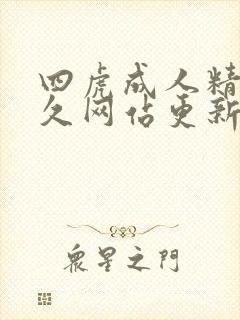 四虎成人精
久网佔更新
众星之門